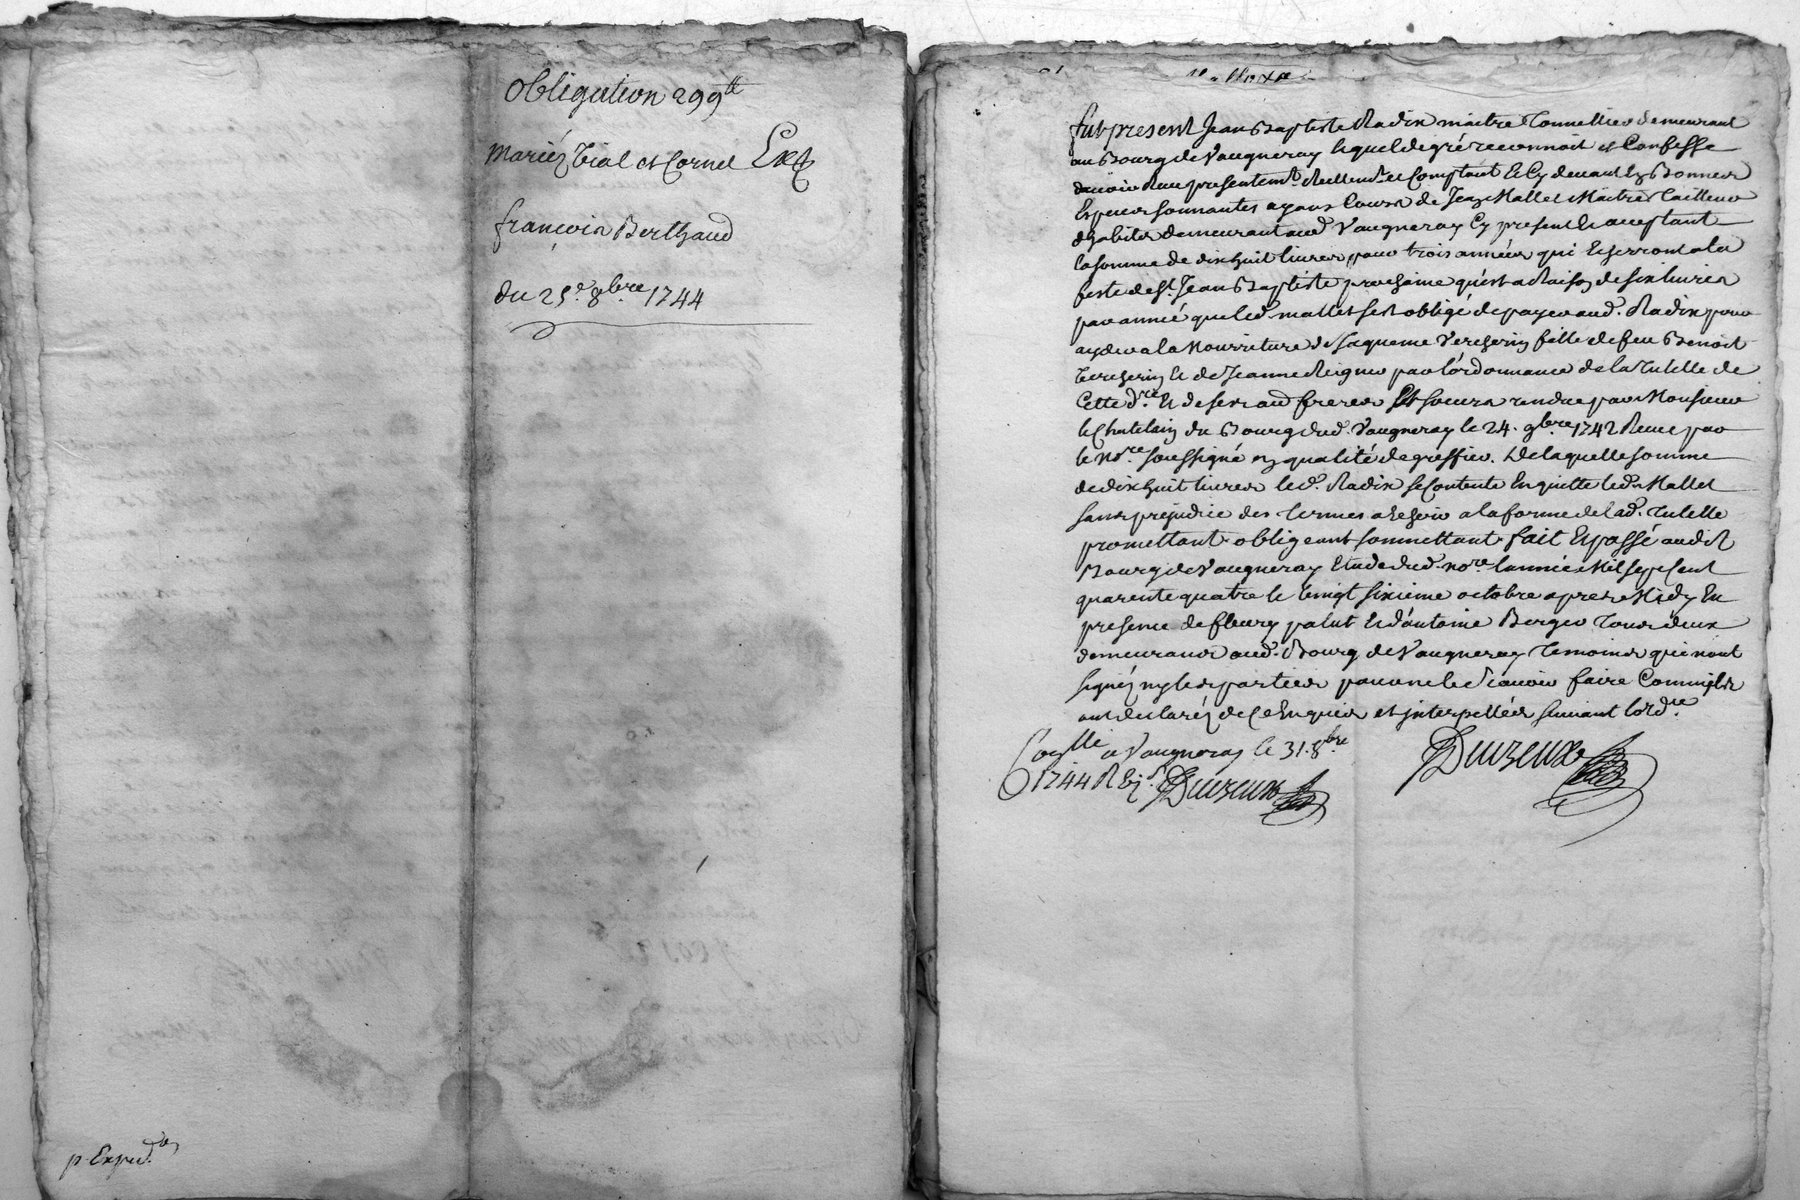 Obligation 299ᵗᵗ
Mariéz Vial et Cornel
françois Berthaud
du 25ᵉ 8bre 1744
p. Expedon
fut present Jean Baptiste Radix maitre Tonnellier demeurant
au Bourg de Vaugneray lequel de gré reconnoit et Confesse
davoir Receu presentemt. Reellemt. et Comptant Et Cy devant En Bonnes
Especes sonnantes ayans Cours de Jean Mallet Maitre Tailleur
d'habits demeurant aud. Vaugneray Cy present Et acceptant
la somme de dixhuit livres pour trois années qui Echerront a la
feste de St. Jean Baptiste prochaine qu'est a Raison de six livres
par année que led. mallet sest obligé de payer aud. Radix pour
ayder a la Nourriture de Jaqueme Vercherin fille de feu Benoit
Vercherin Et de Jeanne Reigner par l'ordonnance de la Tutelle de
Cette dre. Et de ses aud. freres Et soeurs rendue par Monsieur
le Chatelain du Bourg dud. Vaugneray le 24. 9bre 1742 Receue par
le Nore. soussigné en qualité de greffier. De laquelle somme
de dixhuit livres led. Radix se Contente En quitte led. Mallet
sans prejudice des Termes a Echeoir a la forme de lad. Tutelle
promettant obligeant soumettant fait Et passé audit
Bourg de Vaugneray Etude dud. nore. lannée Mil sept cent
quarente quatre le vingt sixieme octobre apres Midy En
presence de fleury palut Et d'antoine Berger Tous deux
demeurans aud. Bourg de Vaugneray Temoins qui n'ont
signéz ny les parties pour ne le scavoir faire Comme ils
ont declaréz de ce Enquis et interpellés suivant lordce.
Conlle a Vaugneray le 31. 8bre
1744 R